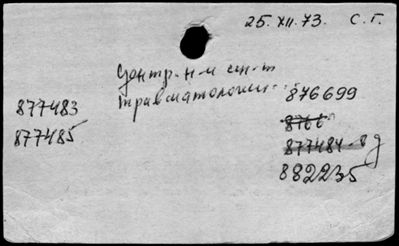 25. XII. 73. С. Г.
Центр. н-и ин-т
травматологии
876699
877483
8766
877485
877484-8д
882235